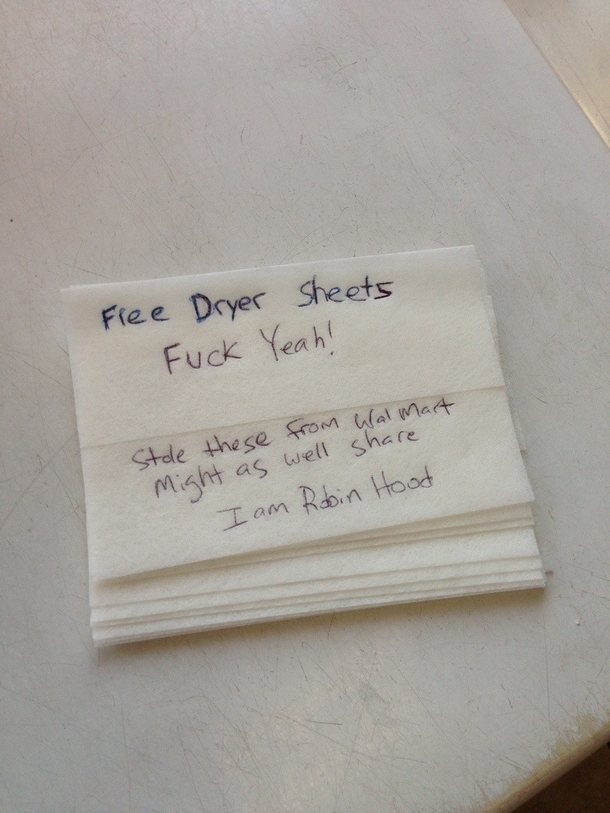 Free Dryer Sheets
Fuck Yeah!
Stole these from Walmart
Might as well share
I am Robin Hood